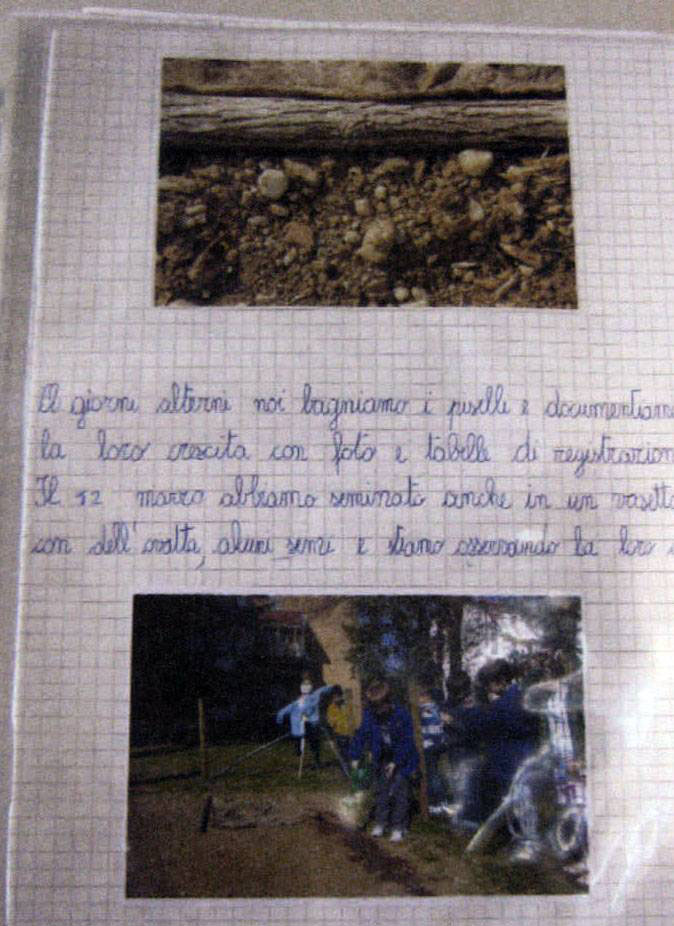 A giorni alterni noi bagniamo i piselli e documentiam
la loro crescita con foto e tabelle di registrazion
Il 12 marzo abbiamo seminato anche in un vasett
con dell'ovatta, alcuni semi e stiamo osservando la loro